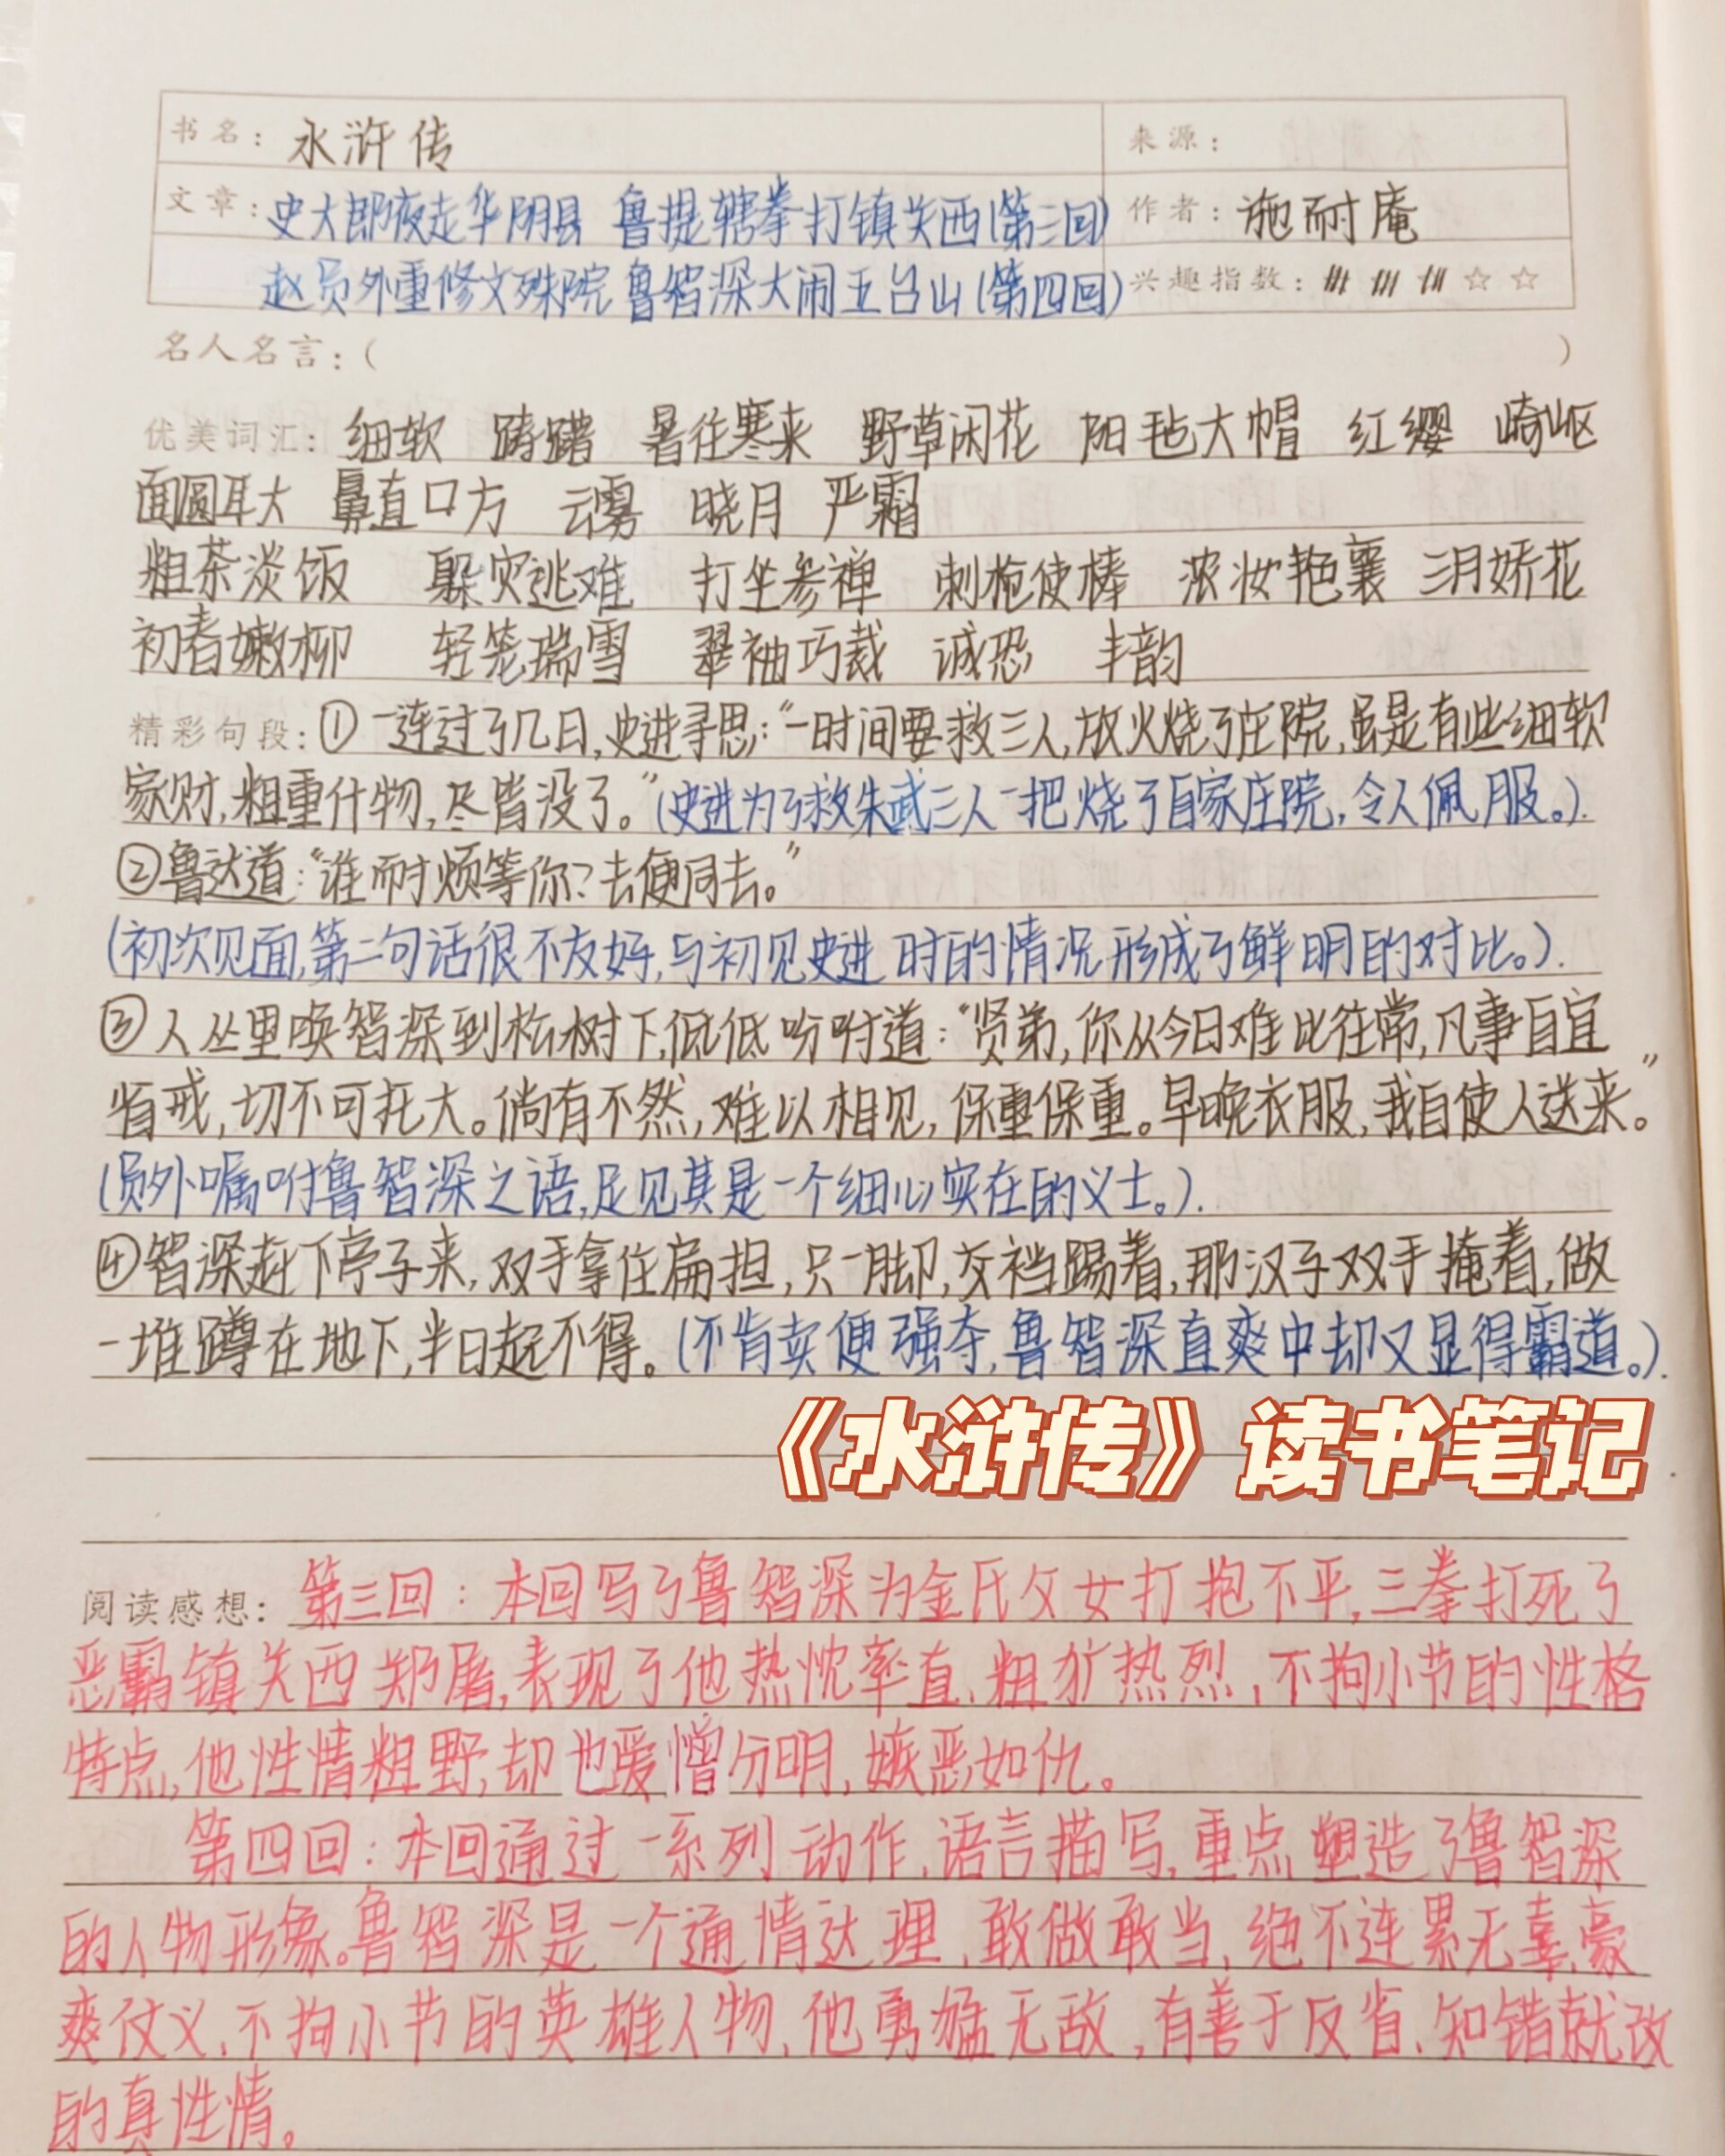 书名：水浒传 来源：
文章：史大郎夜走华阴县 鲁提辖拳打镇关西(第三回) 作者：施耐庵
赵员外重修文殊院 鲁智深大闹五台山(第四回) 兴趣指数：☆☆
名人名言：( )
优美词汇：细软 踌躇 暑往寒来 野草闲花 阳毡大帽 红缨 崎岖
面圆耳大 鼻直口方 云雾 晓月 严霜
粗茶淡饭 躲灾逃难 打坐参禅 刺枪使棒 浓妆艳裹 三月娇花
初春嫩柳 轻笼瑞雪 翠袖巧裁 诚恐 丰韵
精彩句段：①一连过了几日,史进寻思:“一时间要救三人,放火烧了庄院,虽是有些细软
家财,粗重什物,尽皆没了。”(史进为了救朱武三人一把烧了自家庄院,令人佩服。).
②鲁达道:“谁耐烦等你?去便同去。”
(初次见面,第二句话很不友好,与初见史进时的情况形成了鲜明的对比。).
③人丛里唤智深到松树下,低低吩咐道:“贤弟,你从今日难比往常,凡事自宜
省戒,切不可托大。倘有不然,难以相见,保重保重。早晚衣服,我自使人送来。”
(员外嘱咐鲁智深之语,足见其是一个细心实在的义士。).
④智深赶下亭子来,双手拿住扁担,只一脚,交裆踢着,那汉子双手掩着,做
一堆蹲在地下,半日起不得。(不肯卖便强夺,鲁智深直爽中却又显得霸道。).
《水浒传》读书笔记
阅读感想：第三回：本回写了鲁智深为金氏父女打抱不平,三拳打死了
恶霸镇关西郑屠,表现了他热忱率直、粗犷热烈,不拘小节的性格
特点,他性情粗野,却也爱憎分明,嫉恶如仇。
第四回：本回通过一系列动作、语言描写,重点塑造了鲁智深
的人物形象。鲁智深是一个通情达理、敢做敢当、绝不连累无辜,豪
爽仗义、不拘小节的英雄人物,他勇猛无敌,有善于反省、知错就改
的真性情。